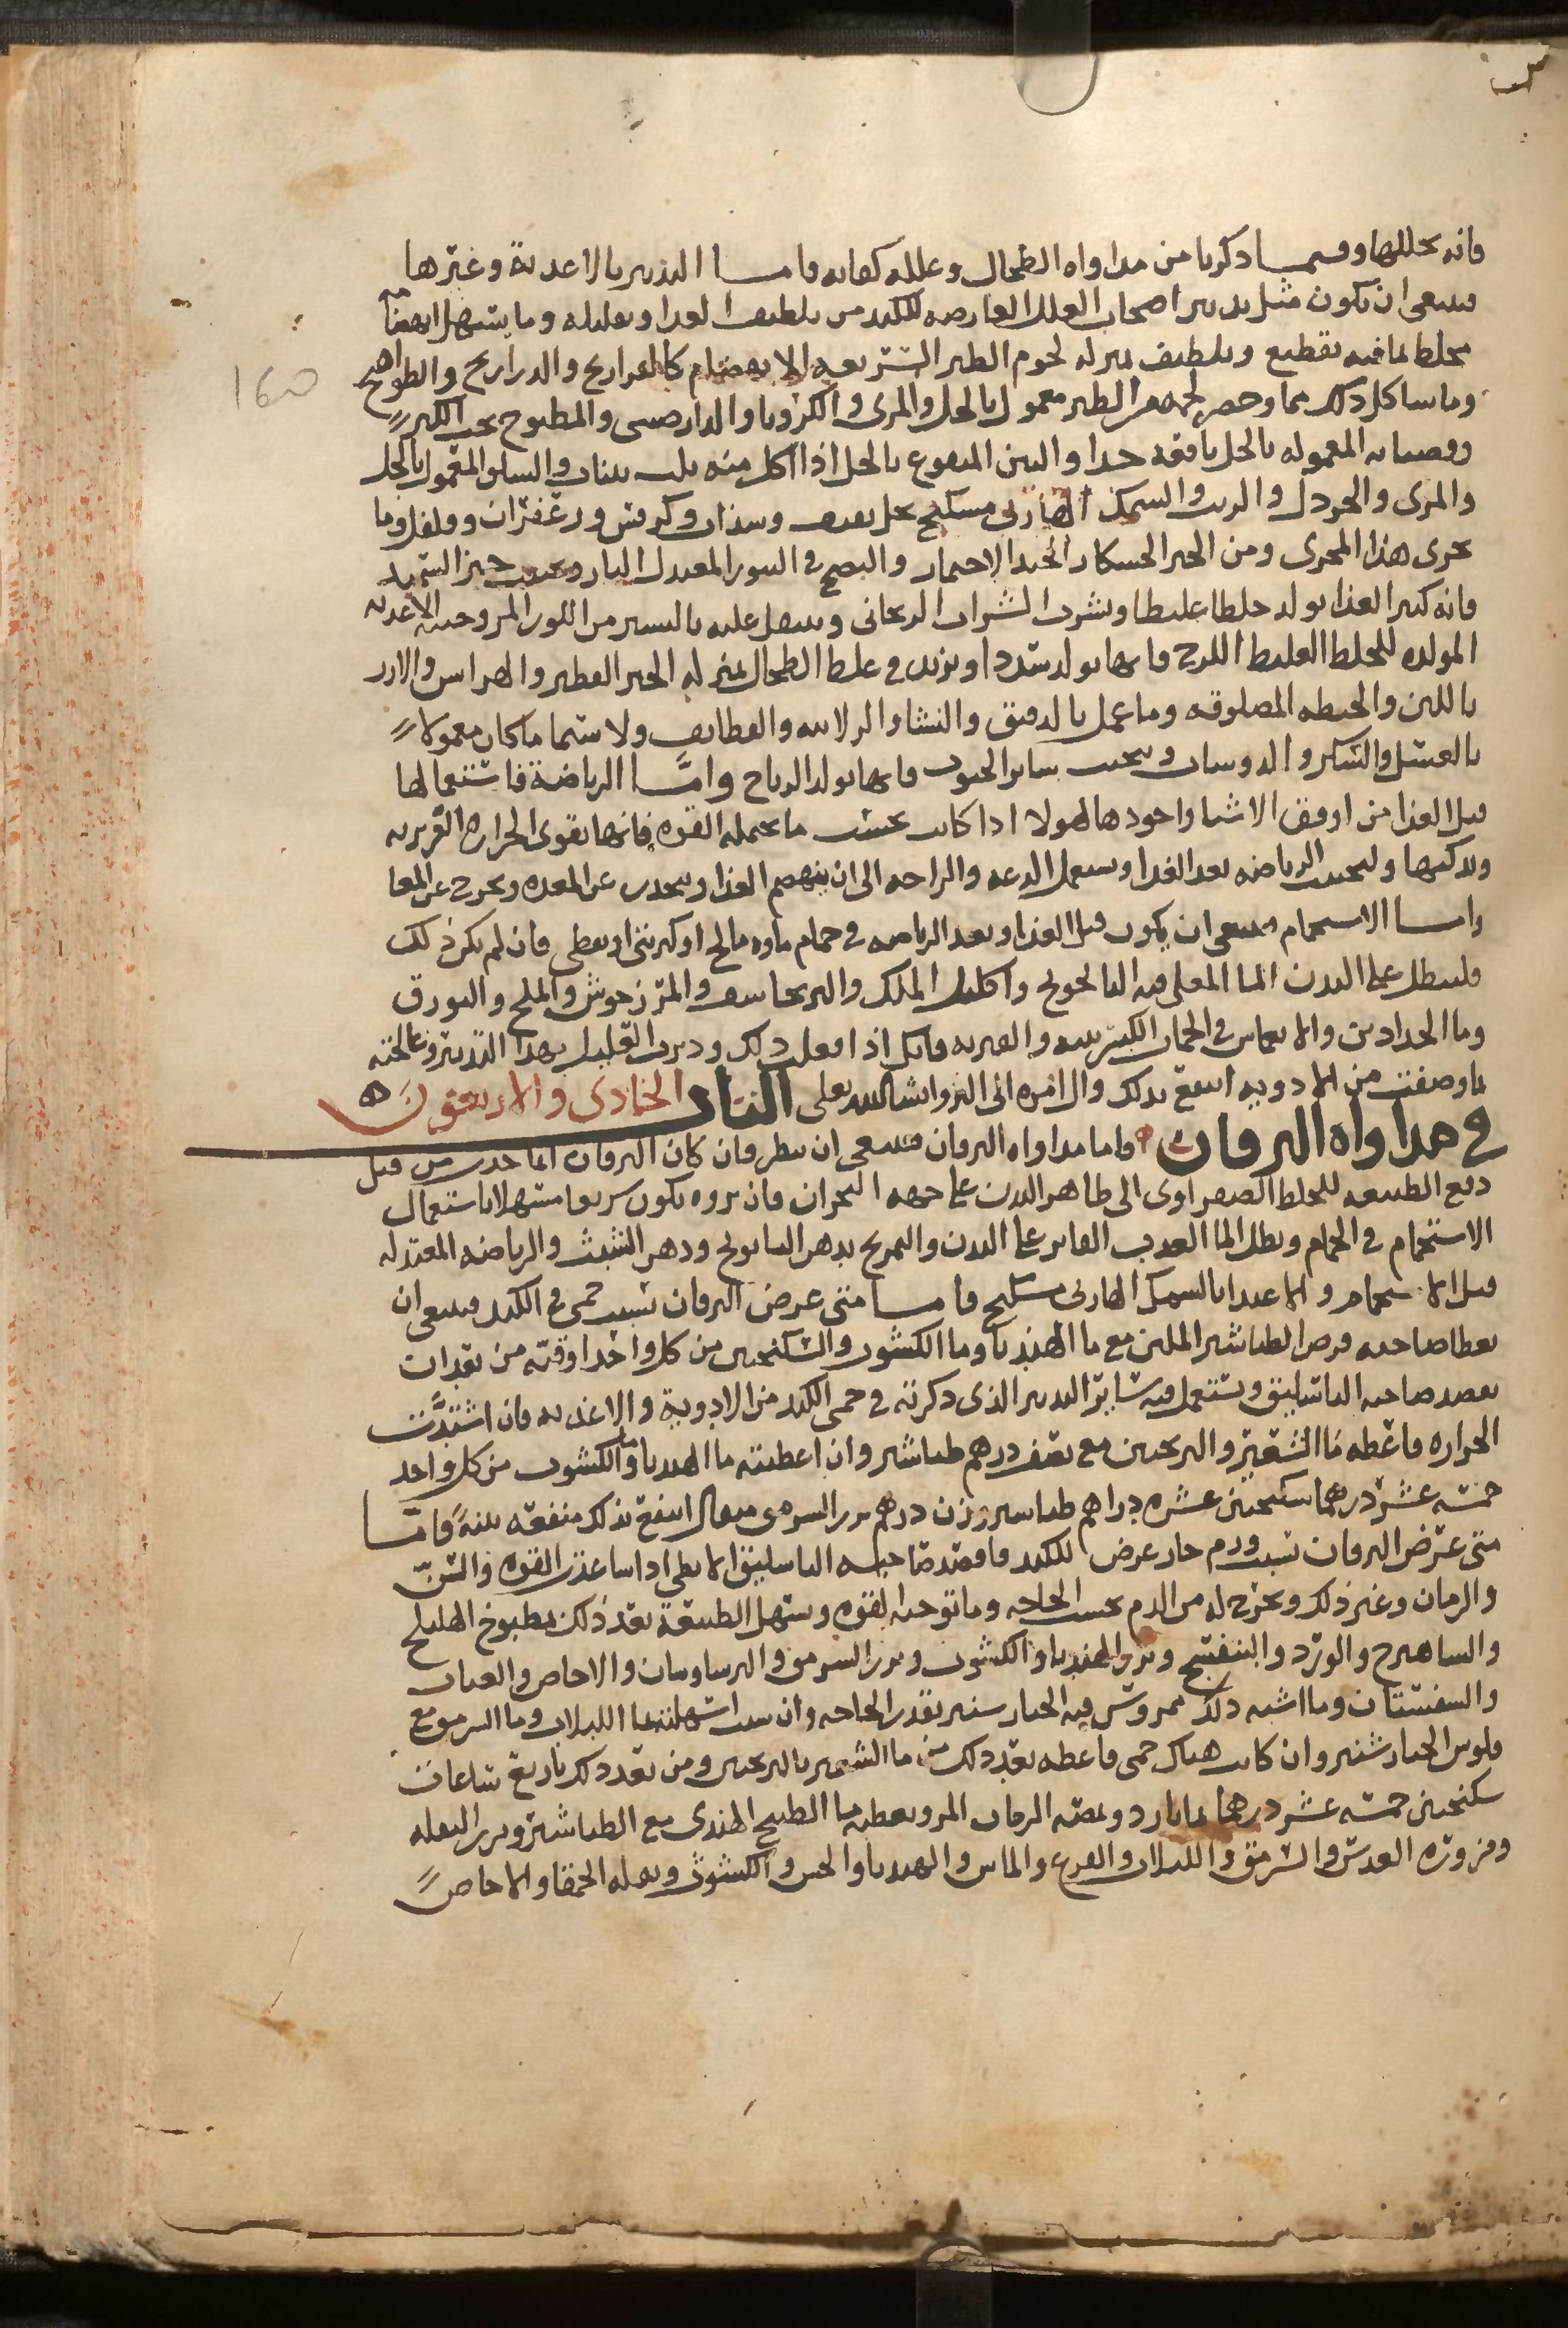 160
فانه يحللها وفيما ذكرنا من مداواه الطحال وعلله كفايه فاما التدبير بالاغذية وغيرها
فينبغي ان يكون مثل تدبير اصحاب العلل العارضه للكبد من تلطيف الغذا وتقليله وما يسهل انهضامه
مخلط لما فيه تقطيع وتلطيف بمنزله لحوم الطير السريعه الانهضام كالفراريج والدراريج والطواهيج
وما شاكل ذلك مما وخص لحم الطير معمول بالخل والمرى والكرويا والدارصيني والمطبوخ بحب الكبر
وقضبانه المعموله بالخل نافعه جدا والتين المنقوع بالخل اذا اكل منه ثلث تينات والسلق المعمول بالخل
والمرى والخردل والزيت والسمك الهازلي مسكبج بخل ثقيف وسذاب وكرفس وزعفران وفلفل وما
يجرى هذا المجرى ومن الخبز الخشكار الجيد الاختمار والنضج في التنور المعتدل النار ويجتنب خبز السميد
فانه كثير الغذا يولد خلطا غليظا ويشرب الشراب الريحاني ويتنقل عليه باليسير من اللوز المر وجنب الاغذيه
المولده للخلط الغليظ اللزج فانها تولد سددا وتزيد في غلظ الطحال بمنزله الخبز الفطير والهرايس والارز
باللبن والحنطه المصلوقه وما عمل بالدقيق والنشا والزلابيه والقطايف ولا سيما ما كان معمولا
بالعسل والسكر والدوشاب ويجتنب ساير الحبوب فانها تولد الرياح واما الرياضة فاستعمالها
قبل الغذا من اوفق الاشيا واجودها لهولا اذا كانت بحسب ما تحمله القوه فانها تقوى الحراره الغريزيه
وتذكيها وليجتنب الرياضه بعد الغذا ويستعمل الدعه والراحه الى ان ينهضم الغذا وينحدر عن المعده ويخرج عن المعا
واما الاستحمام فينبغي ان يكون قبل الغذا وبعد الرياضه في حمام ماوه مالح او كبريتي او نفطي فان لم يكن ذلك
فلينطل على البدن الما المغلي فيه البابونج واكليل الملك والبرنجاسف والمرزنجوش والملح والبورق
وما الحدادين والانغماس في الحمات الكبريتيه والقيريه فانك اذا فعلت ذلك ودبرت العليل بهذا التدبير وعالجته
بما وصفت من الادويه انتفع بذلك وال امره الى البرو انشا الله تعلى الباب الحادى والاربعون
في مداواه اليرقان واما مداواه اليرقان فينبغي ان ينظر فان كان اليرقان انما حدث من قبل
دفع الطبيعه للخلط الصفراوى الى ظاهر البدن على جهه البحران فان بروه يكون سريعا سهلا باستعمال
الاستحمام في الحمام ونطل الما العذب الفاتر على البدن والتمريخ بدهن البابونج ودهن الشبث والرياضه المعتدله
قبل الاستحمام والاغتدا بالسمك الهازلي مسكبج فاما متى عرض اليرقان بسبب حمى في الكبد فينبغي ان
يعطا صاحبه قرص الطباشير الملين مع ما الهندبا وما الكشوث والسكنجبين من كل واحد اوقيه من بعد ان
يفصد صاحبه الباسليق ويستعمل فيه ساير التدبير الذى ذكرته في حمى الكبد من الادوية والاغذيه فان اشتدت
الحراره فاعطه ما الشعير والترنجبين مع نصف درهم طباشير وان اعطيته ما الهندبا وما الكشوث من كل واحد
خمسه عشر درهما سكنجبين عشره دراهم طباشير وزن درهم بزر السرمق مثقال انتفع بذلك منفعه بينة فاما
متى عرض اليرقان بسبب ورم حار عرض للكبد فافصد صاحبه الباسليق الابطى اذا ساعدت القوه والسن
والزمان وغير ذلك ويخرج له من الدم بحسب الحاجه وما توجبه القوه وتسهل الطبيعة بعد ذلك بمطبوخ الهليلج
والساهترج والورد والبنفسج وبزر الهندبا والكشوث وبزر السرمق والبرساوسان والاجاص والعناب
والسفستان وما اشبه ذلك ممروس فيه الخيار شنبر بقدر الحاجه وان شيت اسهلته بما اللبلاب وما السرمق مع
فلوس الخيار شنبر وان كانت هناك حمى فاعطه بعد ذلك من ما الشعير بالترنجبين ومن بعد ذلك باربع ساعات
سكنجبين خمسه عشر درهما بما بارد ومصه الرمان المر ويعطيه ما البطيخ الهندى مع الطباشير وبزر البقله
ومزوره العدس والسرمق واللبلاب والقرع والماش والهندبا والخس والكشوث وبقله الحمقا والاجاص